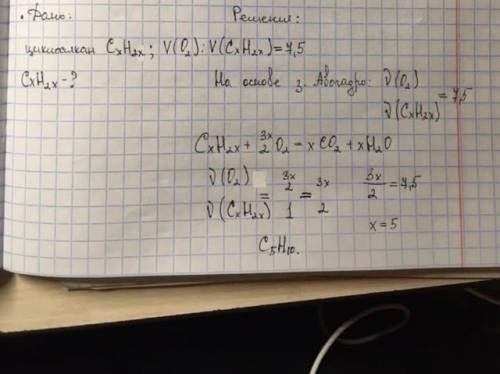 Дано: Решение:
циклоалкан CxH2x; V(O2):V(CxH2x)=7,5
CxH2x-? На основе з. Авогадро: ν(O2)
ν(CxH2x) = 7,5
CxH2x + 3x/2 O2 = xCO2 + xH2O
ν(O2) 3x/2 3x 3x/2 = 7,5
ν(CxH2x) = 1 = 2
x=5
C5H10.